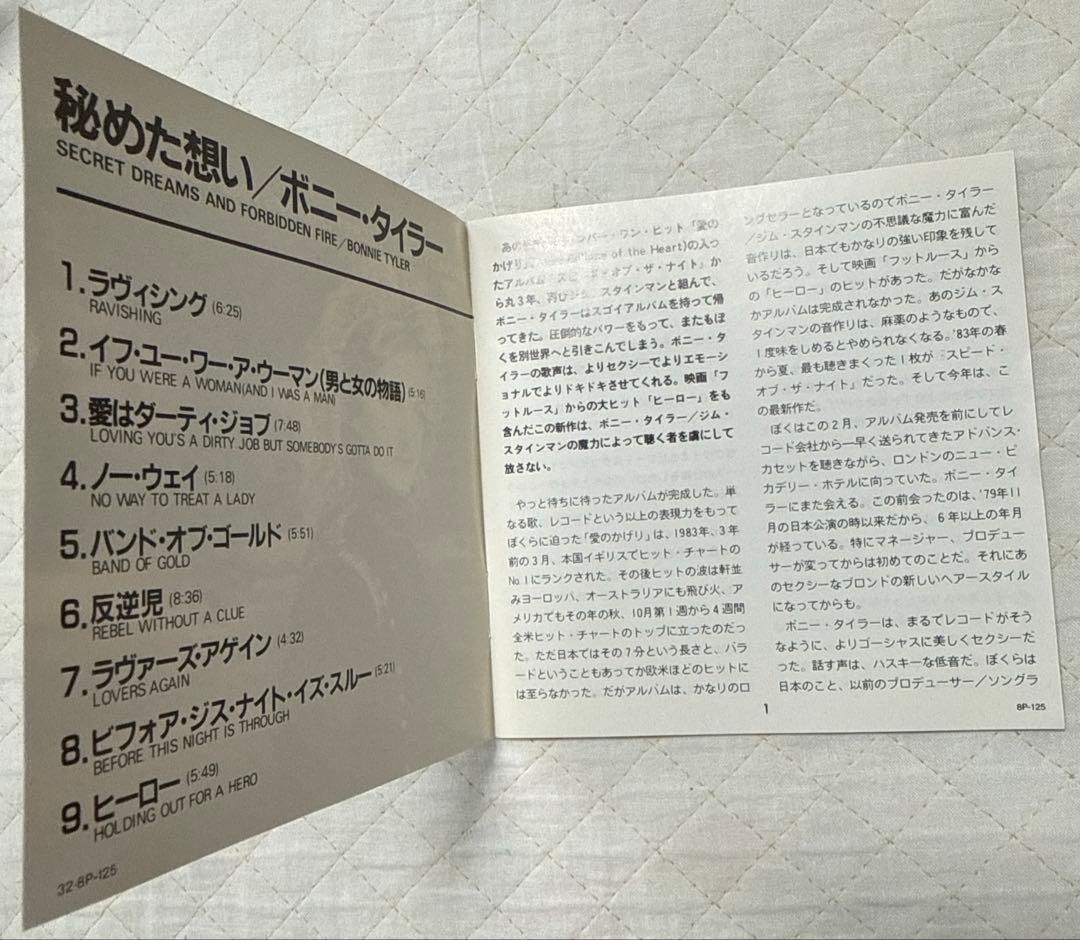 秘めた想い／ボニー・タイラー
SECRET DREAMS AND FORBIDDEN FIRE/BONNIE TYLER
1.ラヴィシング (6:25)
RAVISHING
2.イフ・ユー・ワー・ア・ウーマン(男と女の物語) (5:16)
IF YOU WERE A WOMAN(AND I WAS A MAN)
3.愛はダーティ・ジョブ (7:48)
LOVING YOU'S A DIRTY JOB BUT SOMEBODY'S GOTTA DO IT
4.ノー・ウェイ (5:18)
NO WAY TO TREAT A LADY
5.バンド・オブ・ゴールド (5:51)
BAND OF GOLD
6.反逆児 (8:36)
REBEL WITHOUT A CLUE
7.ラヴァーズ・アゲイン (4:32)
LOVERS AGAIN
8.ビフォア・ジス・ナイト・イズ・スルー (5:21)
BEFORE THIS NIGHT IS THROUGH
9.ヒーロー (5:49)
HOLDING OUT FOR A HERO
32・8P-125
あの ナンバー・ワン・ヒット「愛の
かげり of the Heart)の入っ
たアルバム オブ・ザ・ナイト」か
ら丸3年、再びジム・スタインマンと組んで、
ボニー・タイラーはスゴイアルバムを持って帰
ってきた。圧倒的なパワーをもって、またもぼ
くを別世界へと引きこんでしまう。ボニー・タ
イラーの歌声は、よりセクシーでよりエモーシ
ョナルでよりドキドキさせてくれる。映画「フ
ットルース」からの大ヒット「ヒーロー」をも
含んだこの新作は、ボニー・タイラー／ジム・
スタインマンの魔力によって聴く者を虜にして
放さない。
やっと待ちに待ったアルバムが完成した。単
なる歌、レコードという以上の表現力をもって
ぼくらに迫った「愛のかげり」は、1983年、3年
前の3月、本国イギリスでヒット・チャートの
No.1にランクされた。その後ヒットの波は軒並
みヨーロッパ、オーストラリアにも飛び火、ア
メリカでもその年の秋、10月第1週から4週間
全米ヒット・チャートのトップに立ったのだっ
た。ただ日本ではその7分という長さと、バラ
ードということもあってか欧米ほどのヒットに
は至らなかった。だがアルバムは、かなりのロ
1
ングセラーとなっているのでボニー・タイラー
／ジム・スタインマンの不思議な魔力に富んだ
音作りは、日本でもかなりの強い印象を残して
いるだろう。そして映画「フットルース」から
の「ヒーロー」のヒットがあった。だがなかな
かアルバムは完成されなかった。あのジム・ス
タインマンの音作りは、麻薬のようなもので、
1度味をしめるとやめられなくなる。'83年の春
から夏、最も聴きまくった1枚が「スピード・
オブ・ザ・ナイト」だった。そして今年は、こ
の最新作だ。
ぼくはこの2月、アルバム発売を前にしてレ
コード会社から一早く送られてきたアドバンス・
カセットを聴きながら、ロンドンのニュー・ピ
カデリー・ホテルに向っていた。ボニー・タイ
ラーにまた会える。この前会ったのは、'79年11
月の日本公演の時以来だから、6年以上の年月
が経っている。特にマネージャー、プロデュー
サーが変ってからは初めてのことだ。それにあ
のセクシーなブロンドの新しいヘアースタイル
になってからも。
ボニー・タイラーは、まるでレコードがそう
なように、よりゴーシャスに美しくセクシーだ
った。話す声は、ハスキーな低音だ。ぼくらは
日本のこと、以前のプロデューサー／ソングラ
8P-125